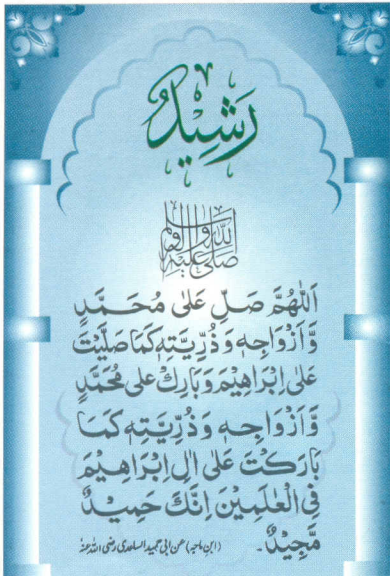 رَشِيْدٌ
صَلَّی اللّٰهُ عَلَيْهِ وَاٰلِهٖ وَسَلَّمَ
اَللّٰهُمَّ صَلِّ عَلٰی مُحَمَّدٍ
وَّاَزْوَاجِهٖ وَذُرِّيَّتِهٖ كَمَا صَلَّيْتَ
عَلٰی اِبْرَاهِيْمَ وَبَارِكْ عَلٰی مُحَمَّدٍ
وَّاَزْوَاجِهٖ وَذُرِّيَّتِهٖ كَمَا
بَارَكْتَ عَلٰی اٰلِ اِبْرَاهِيْمَ
فِی الْعٰلَمِيْنَ اِنَّكَ حَمِيْدٌ
مَّجِيْدٌ۔ (ابن ماجہ) عن ابی حمید الساعدی رضی اللہ عنہ